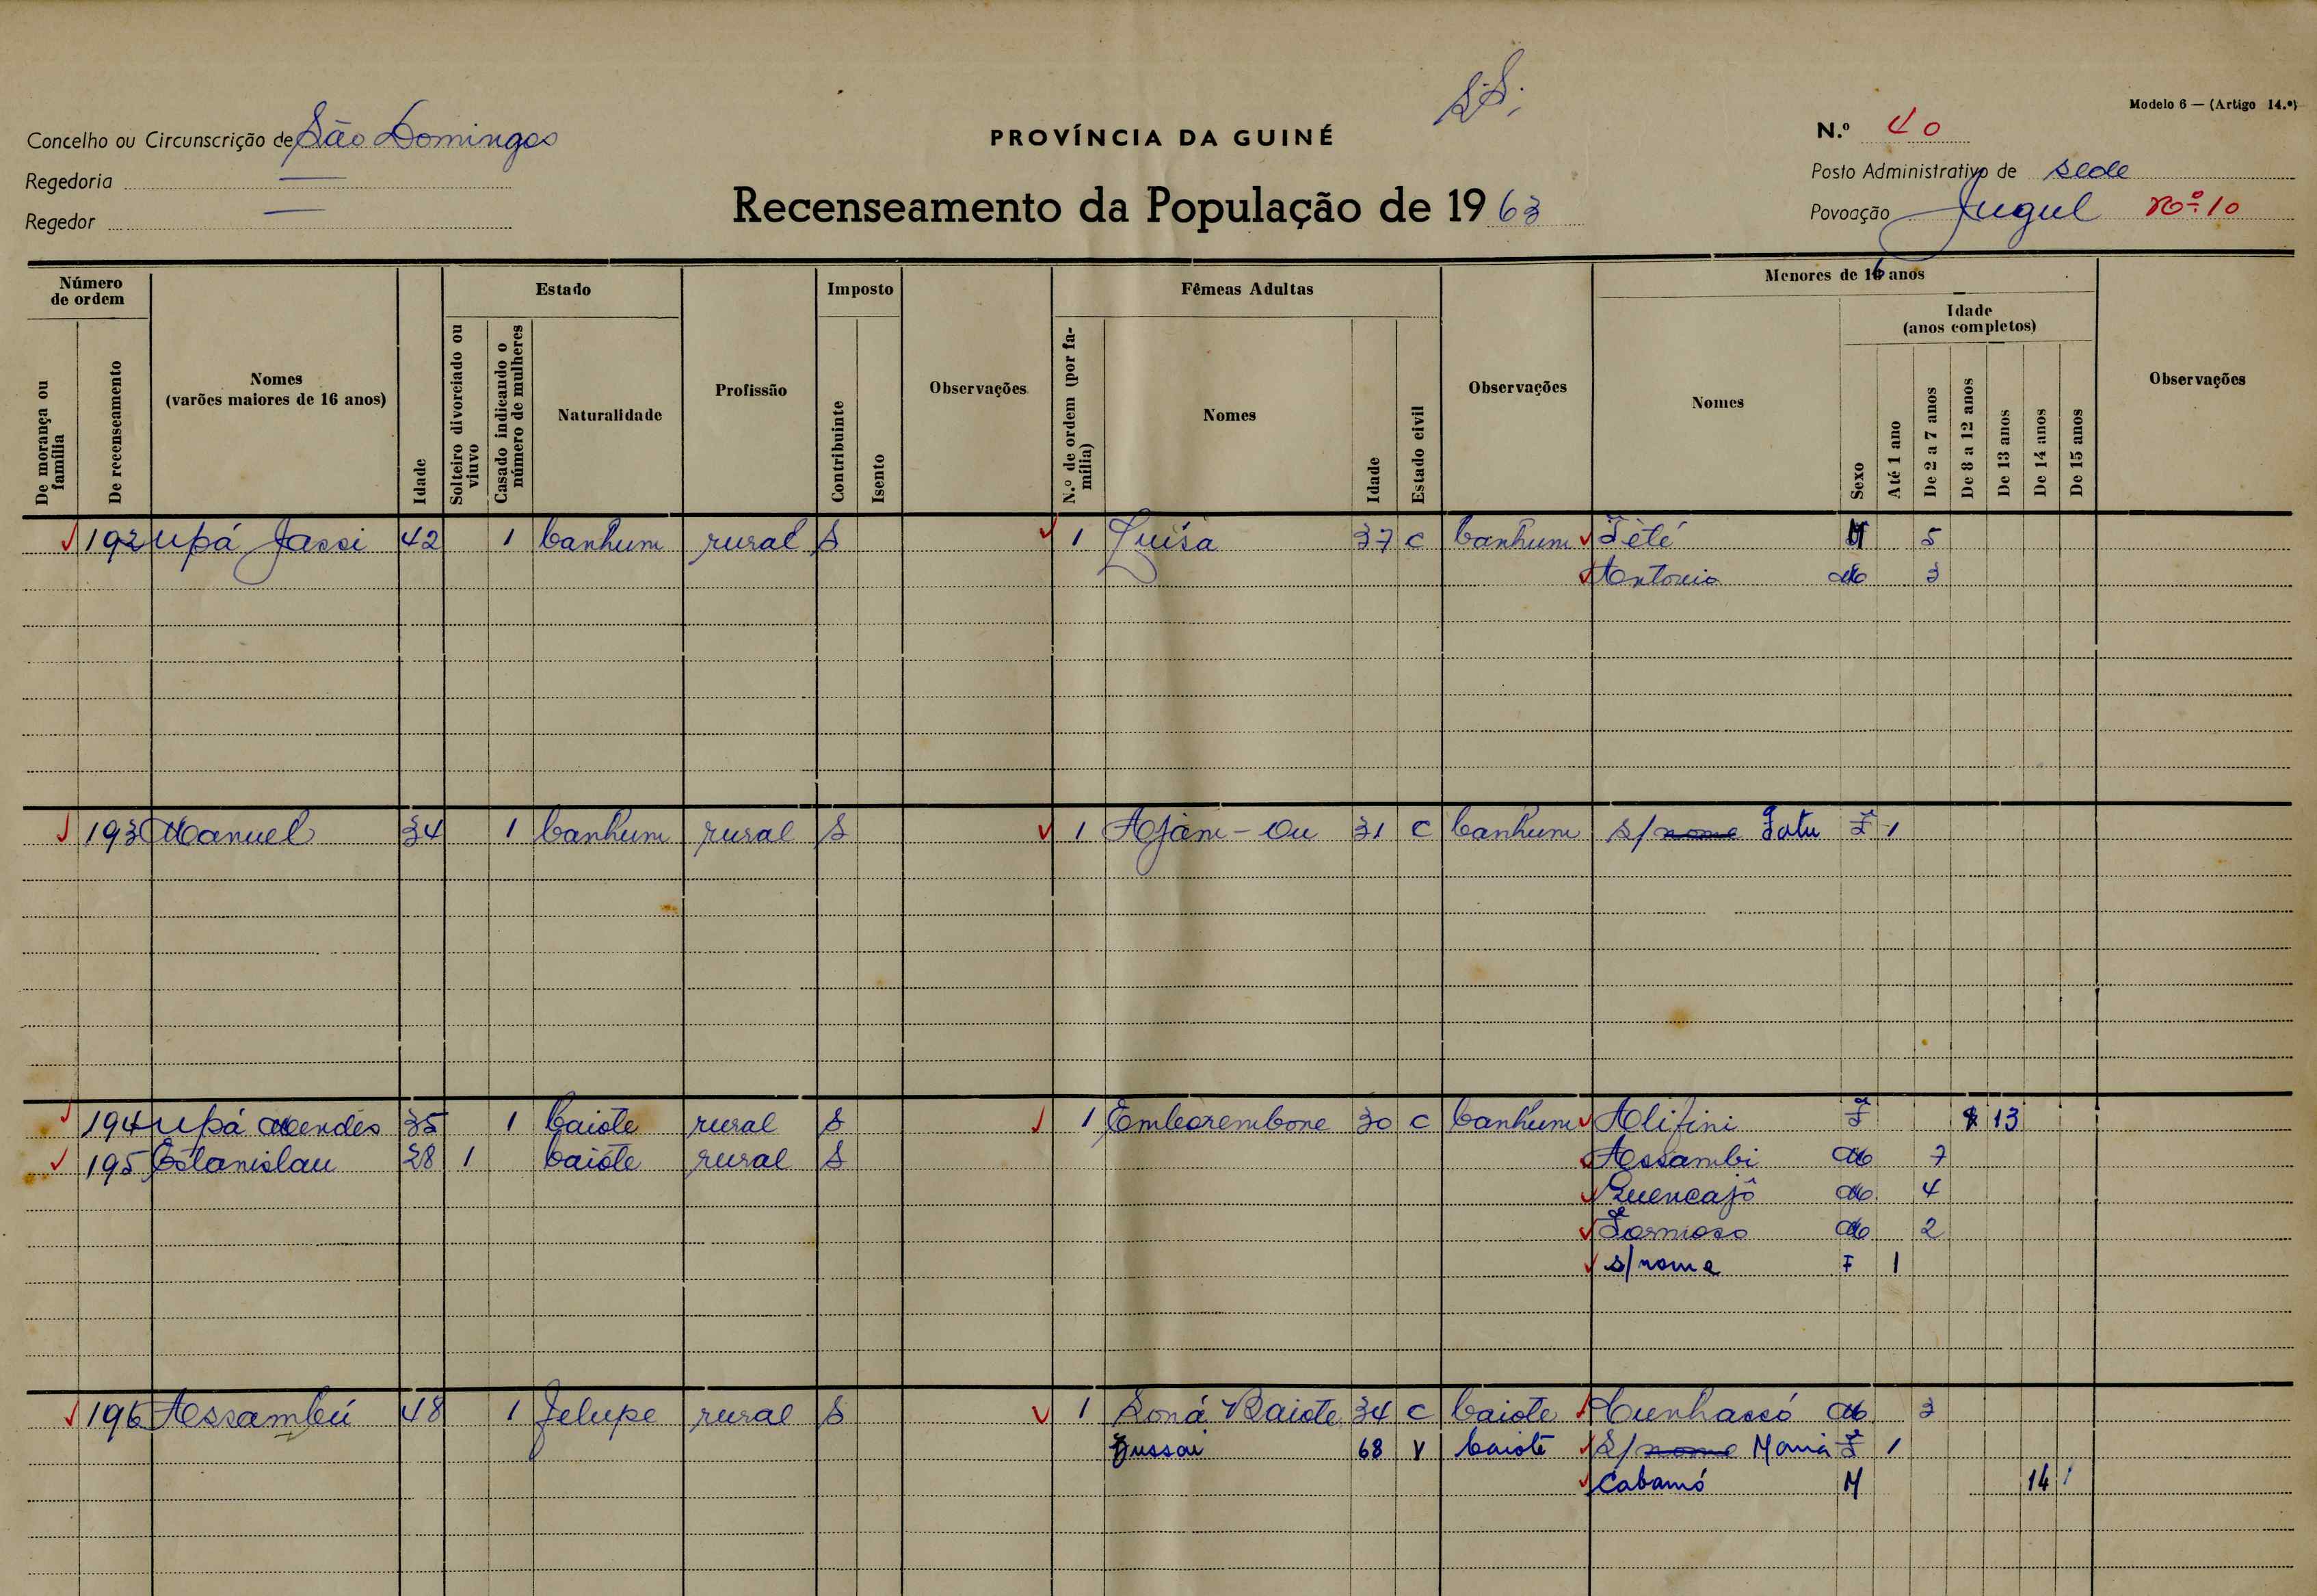 S.S.
Modelo 6 — (Artigo 14.º)
Concelho ou Circunscrição de São Domingos
PROVÍNCIA DA GUINÉ
N.º 40
Regedoria —
Posto Administrativo de sede
Regedor —
Recenseamento da População de 1963
Povoação Jugul nº 10
Número de ordem
Estado
Imposto
Fêmeas Adultas
Menores de 16 anos
Idade
(anos completos)
De morança ou família
De recenseamento
Nomes
(varões maiores de 16 anos)
Idade
Solteiro divorciado ou viuvo
Casado indicando o número de mulheres
Naturalidade
Profissão
Contribuinte
Isento
Observações
N.º de ordem (por família)
Nomes
Idade
Estado civil
Observações
Nomes
Sexo
Até 1 ano
De 2 a 7 anos
De 8 a 12 anos
De 13 anos
De 14 anos
De 15 anos
Observações
192 Upá Jassi 42 1 banhum rural S 1 Luísa 37 c banhum Tété M 5
Antonio M 3
193 Manuel 34 1 banhum rural S 1 Ajam-Ou 31 c banhum S/ nome Fatu F 1
194 Upá Mendes 35 1 baiote rural S 1 Emborembone 30 c banhum Alifini F 8 13
195 Estanislau 28 1 baiote rural S Assambi M 7
Quencajô M 4
Formoso M 2
s/nome F 1
196 Assambú 48 1 felupe rural S 1 Soná Baiote 34 c baiote Cunhassó M 3
Jussai 68 V baiote S/ nome Maria F 1
Cabamó M 14